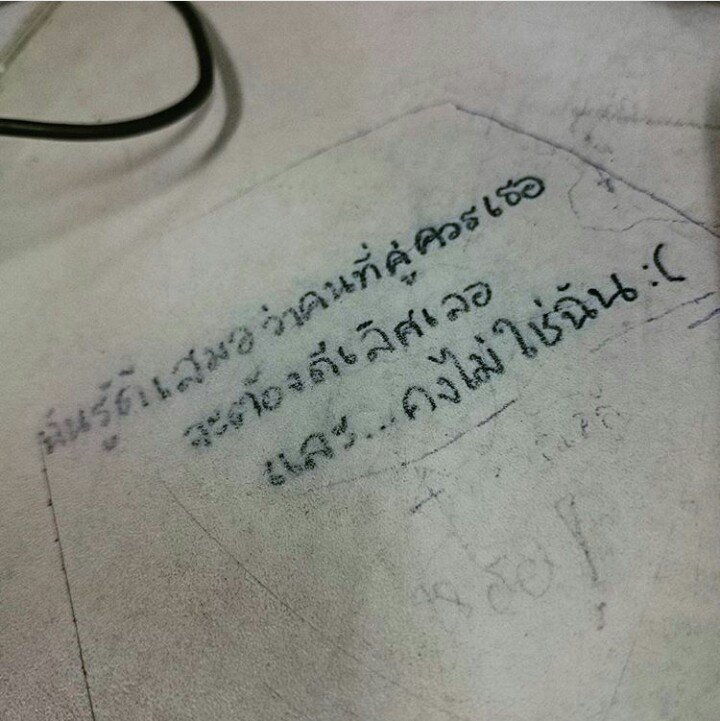 ฉันรู้ดีเสมอว่าคนที่คู่ควรเธอ
จะต้องดีเลิศเลอ
และ...คงไม่ใช่ฉัน :(